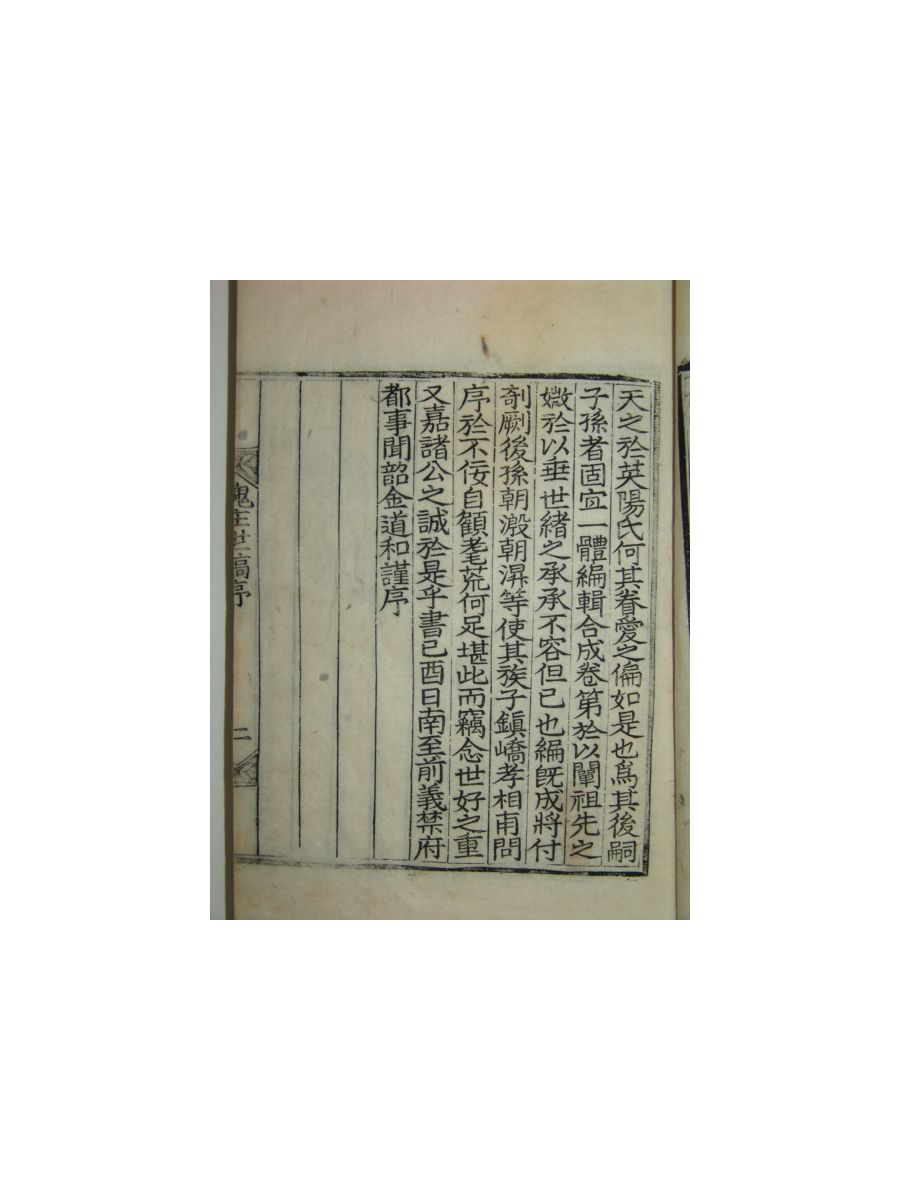 天之於英陽氏何其眷愛之偏如是也爲其後嗣
子孫者固宜一體編輯合成卷第於以闡祖先之
媺於以垂世緖之承承不容但已也編旣成將付
剞劂後孫朝瀫朝潩等使其族子鎭嶠孝相甫問
序於不佞自顧耄荒何足堪此而竊念世好之重
又嘉諸公之誠於是乎書己酉日南至前義禁府
都事聞韶金道和謹序
世稿序
二